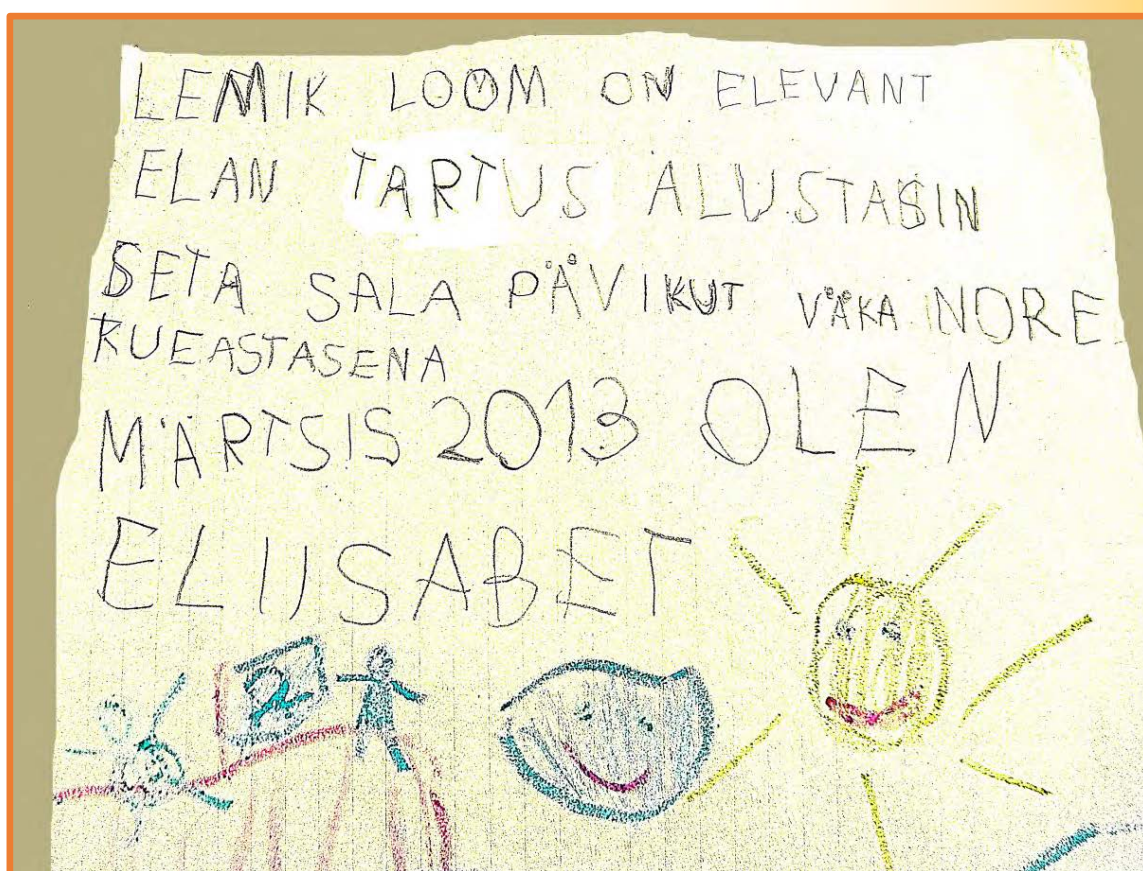 LEMIK LOOM ON ELEVANT
ELAN TARTUS ALUSTASIN
SETA SALA PÄVIKUT VÄKA NORE
KUEASTASENA
MÄRTSIS 2013 OLEN
ELIISABET